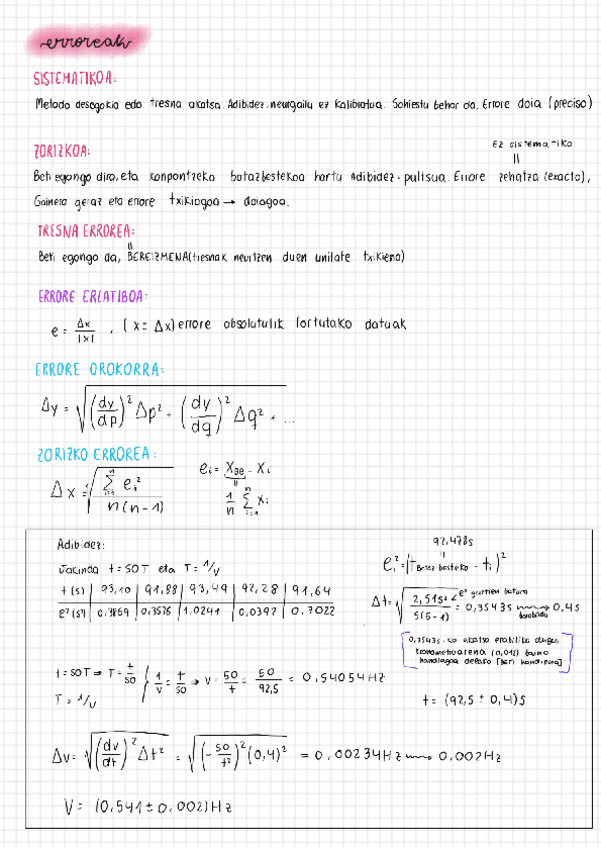 erroreak
SISTEMATIKOA:
Metodo desegokia edo tresna akatsa. Adibidez, neurgailu ez kalibratua. Sahiestu behar da. Errore doia (preciso)
Ez sistematiko
ZORIZKOA:
Beti egongo dira, eta konpontzeko batazbestekoa hartu Adibidez: pultsua. Errore zehatza (exacto),
Gainera geroz eta errore txikiagoa → doiagoa.
TRESNA ERROREA:
Beti egongo da, BEREIZMENA (tresnak neurtzen duen unitate txikiena)
ERRORE ERLATIBOA:
e = Δx/|x| , (x ± Δx) errore absolutulik lortutako datuak
ERRORE OROKORRA:
Δy = √((dy/dp)² Δp² + (dy/dq)² Δq² + ...
ZORIZKO ERROREA:
Δx = √(Σ e_i² / n(n-1))
e_i = x_BB - x_i
1/n Σ x_i
Adibidez:
Jakinda t=50T eta T=1/ν
t(s) | 93,10 | 91,88 | 93,49 | 92,28 | 91,64
e²(s²) | 0,3869 | 0,3576 | 1,0241 | 0,0392 | 0,7022
92,478s
e_i² = (t Batez besteko - t_i)²
Δt = √(2,51s² / 5(5-1)) = 0,35435 s ⇝ 0,4s
e² guztien batura
borobildu
0,35435-ko akatsa erabiliko dugu,
kronometroarena (0,01s) baino
handiagoa delako [beti handiena]
t=50T ⇒ T = t/50
T = 1/ν
1/ν = t/50 ⇒ ν = 50/t = 50/92,5 = 0,54054 Hz
t = (92,5 ± 0,4)s
Δν = √((dν/dt)² Δt²) = √((-50/t²)² (0,4)²) = 0,00234Hz ⇝ 0,002Hz
V = (0,541 ± 0,002) Hz